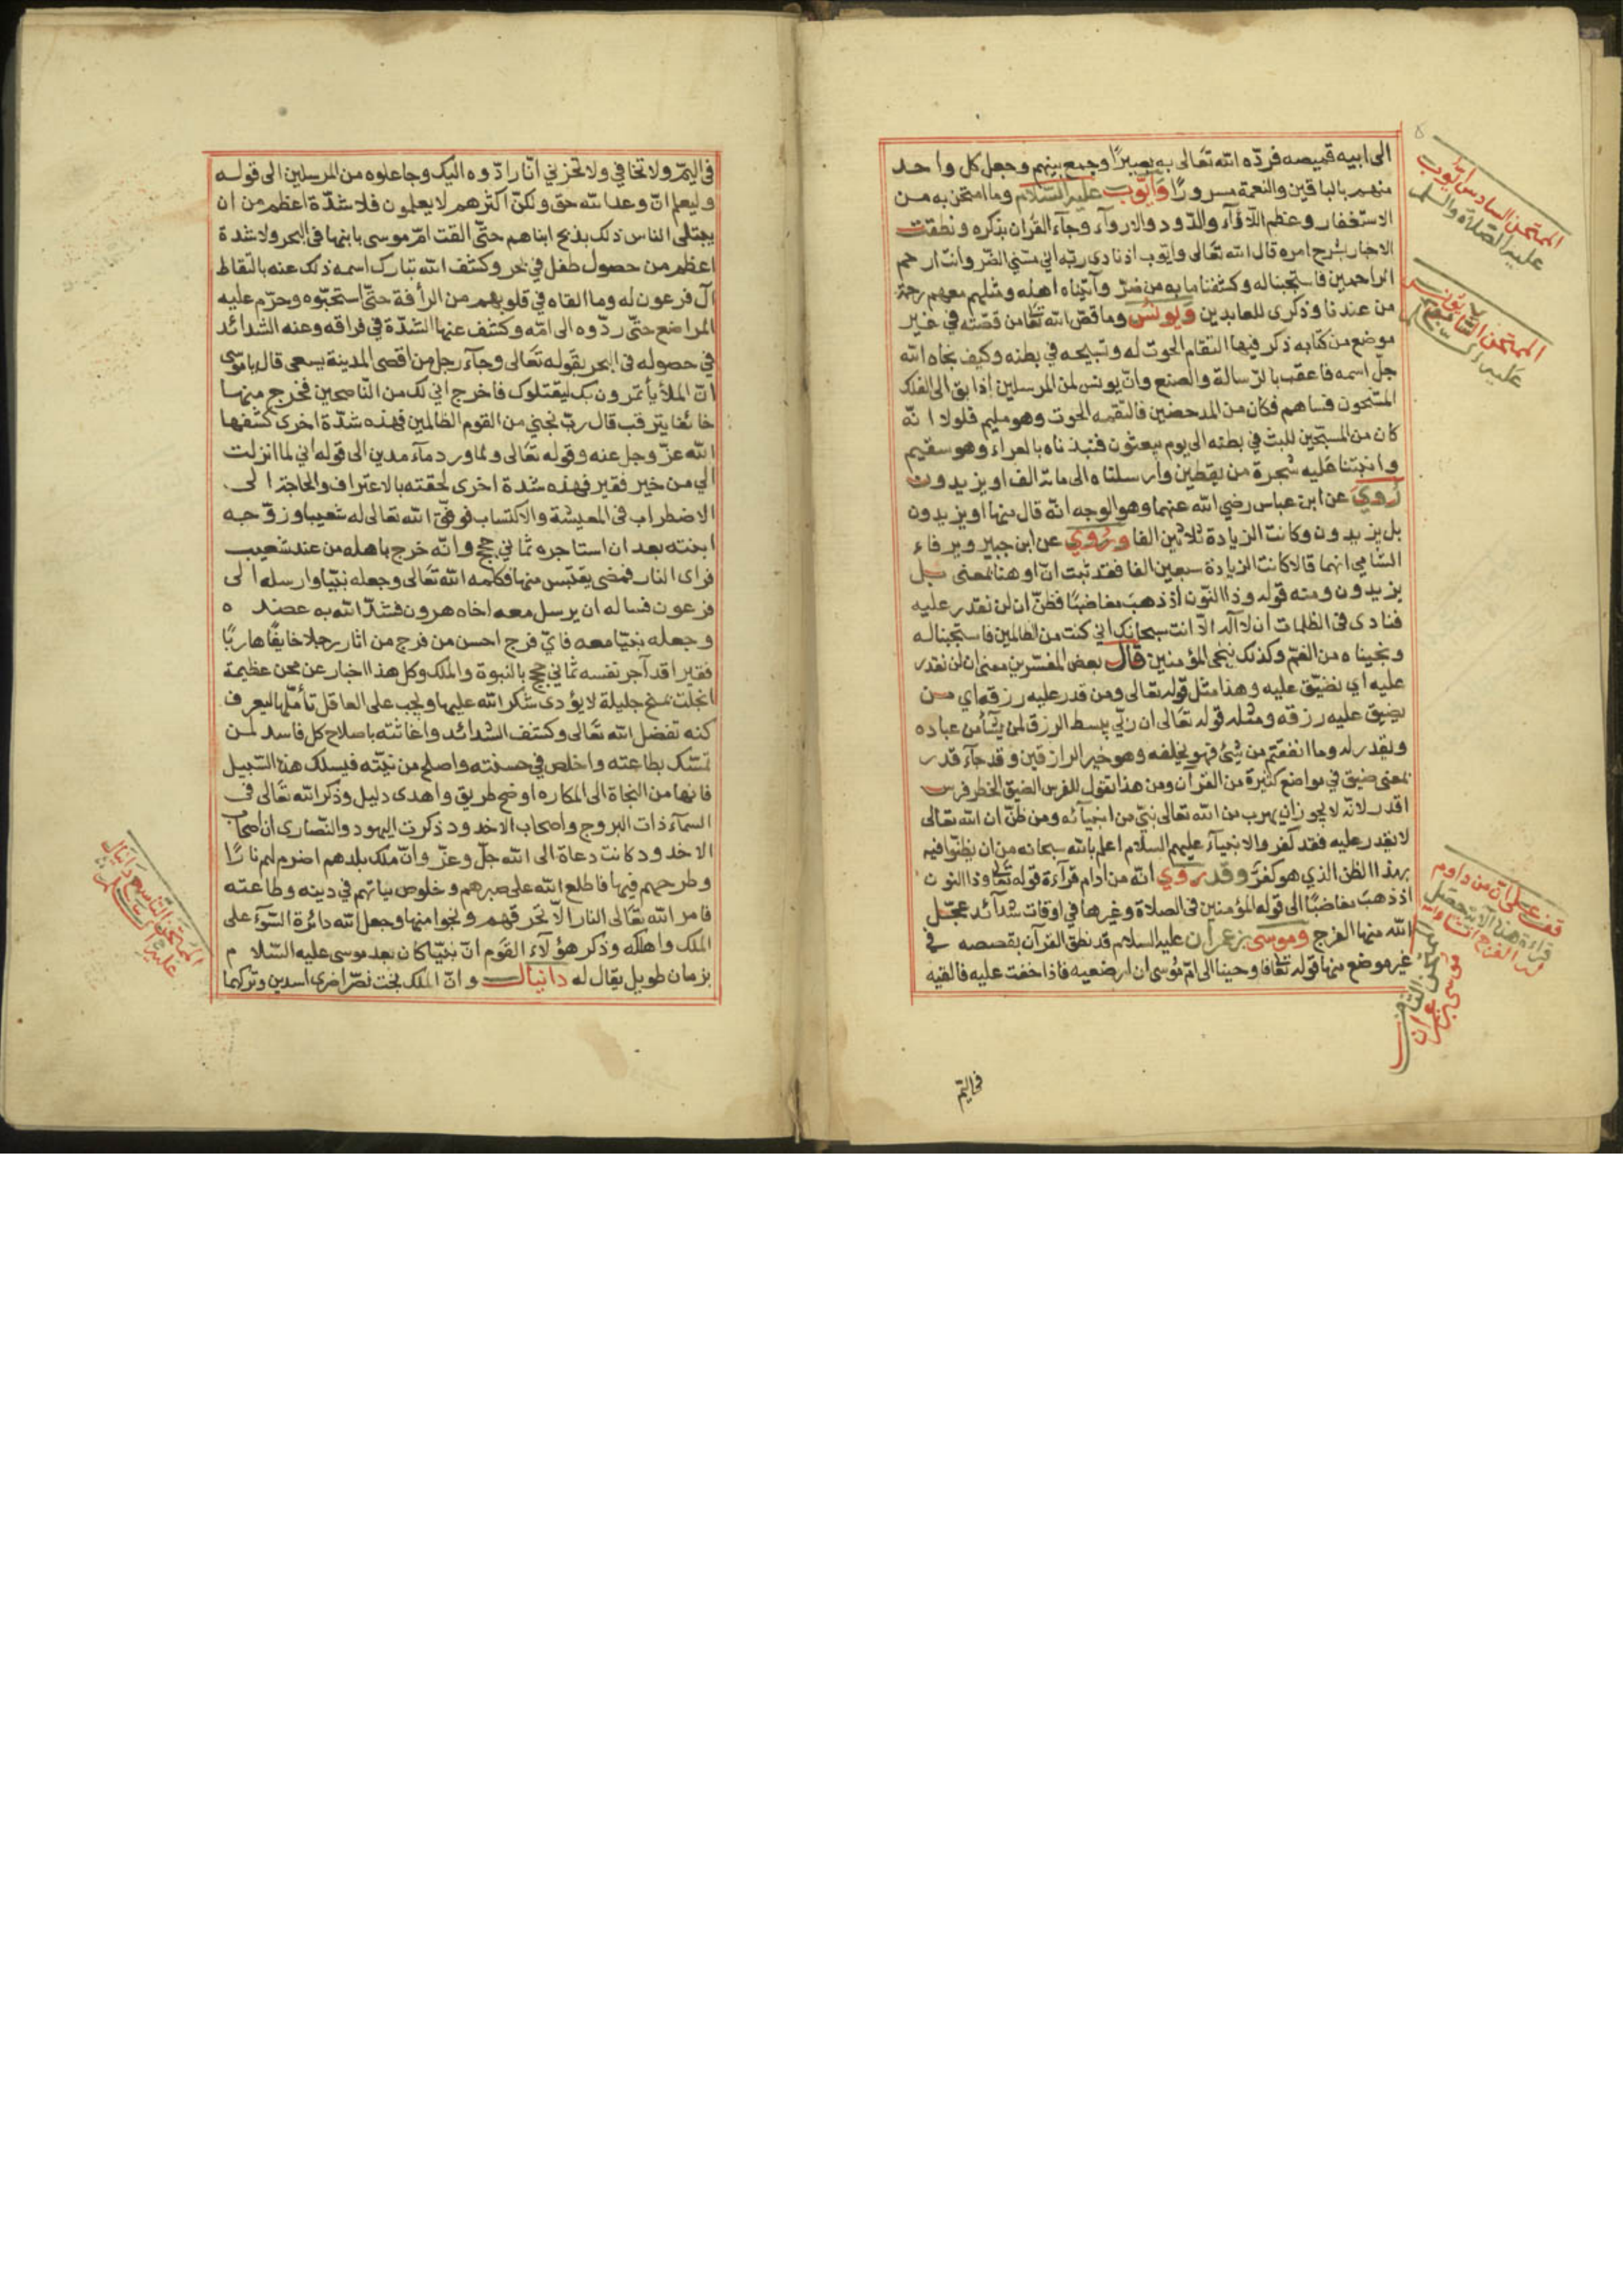 الى ابيه قميصه فردّه الله تعالى به بصيرًا وجمع بينهم وجعل كل واحد
منهم بالباقين والنعمة مسرورًا وأيّوب عليه السّلام وما امتحن به من
الاستغفار وعظم اللأوآء والدّود والاروآء وجآء القرآن بذكره ونطقت
الاخبار بشرح امره قال الله تعالى وايّوب اذ نادى ربّه انّي مسّني الضّر وانت ارحم
الراحمين فاستجبنا له وكشفنا ما به من ضرّ وآتيناه اهله ومثلهم معهم رحمة
من عندنا وذكرى للعابدين ويونس وما قصّ الله تعا من قصّته في غير
موضع من كتابه ذكر فيها التقام الحوت له وتسبيحه في بطنه وكيف نجاه الله
جلّ اسمه فاعقبه بالرّسالة والصنع وانّ يونس لمن المرسلين اذ ابق الى الفلك
المشحون فساهم فكان من المدحضين فالتقمه الحوت وهو مليم فلولا انّه
كان من المسبّحين للبث في بطنه الى يوم يبعثون فنبذناه بالعراء وهو سقيم
وانبتنا عليه شجرة من يقطين وارسلناه الى مائة الف او يزيدون
رُوي عن ابن عباس رضي الله عنهما وهو الوجه انّه قال منها او يزيدون
بل يزيدون وكانت الزيادة ثلاثين الفا ورُوي عن ابن جبير و
الشامي انهما قالا كانت الزيادة سبعين الفا فقد ثبت انّ او هنا بمعنى بل
يزيدون ومنه قوله وذا النّون اذ ذهب مغاضبًا فظنّ ان لن نقدر عليه
فنادى في الظلمات ان لا اله الّا انت سبحانك اني كنت من الظالمين فاستجبنا له
ونجيناه من الغمّ وكذلك ننجي المؤمنين قال بعض المفسّرين معنى ان لن نقدر
عليه اي نضيّق عليه وهذا مثل قوله تعالى ومن قدر عليه رزقه اي من
يضيق عليه رزقه ومثله قوله تعالى ان ربّي يبسط الرزق لمن يشآء من عباده
ويقدر له وما انفقتم من شئ فهو يخلفه وهو خير الرازقين وقد جآء قدر
بمعنى ضيق في مواضع كثيرة من القرآن ومن هذا تقول للفرس الضيق الخطو فرس
اقدر لانّه لا يجوز ان يهرب من الله تعالى نبيّ من انبيآئه ومن ظنّ ان الله تعالى
لا يقدر عليه فقد كفر والانبيآء عليهم السلام اعلم بالله سبحانه من ان يظنّوا فيه
بهذا الظن الذي هو كفرٌ وقد رُوي انّه من ادام قرآءة قوله تعا وذا النون
اذ ذهب مغاضبًا الى قوله المؤمنين في الصلاة وغيرها في اوقات شدآئد عجّل
الله منها الفرج وموسى بن عمران عليه السلام قد نطق القرآن بقصصه في
غير موضع منها قوله تعا واوحينا الى امّ موسى ان ارضعيه فاذا خفت عليه فالقيه
في اليم
الممتحن السادس ايّوب
عليه الصّلاة والسلام
الممتحن السابع يونس
قف على انّ من داوم
قراءة هذه الآية حصل
له الفرج ان شاء الله
الممتحن الثامن
موسى بن عمران
في اليمّ ولا تخافي ولا تحزني انّا رادّوه اليك وجاعلوه من المرسلين الى قوله
وليعلم انّ وعد الله حق ولكنّ اكثرهم لا يعلمون فلا شدّة اعظم من ان
يبتلى الناس ذلك بذبح ابناهم حتّى القت امّ موسى بابنها في البحر ولا شدة
اعظم من حصول طفل في بحر وكشف الله تبارك اسمه ذلك عنه بالتقاط
آل فرعون له وما القاه في قلوبهم من الرأفة حتّى استحبّوه وحرّم عليه
المراضع حتّى ردّوه الى امّه وكشف عنها الشدّة في فراقه وعنه الشدائد
في حصوله في البحر بقوله تعالى وجآء رجل من اقصى المدينة يسعى قال يا موسى
انّ الملأ يأتمرون بك ليقتلوك فاخرج اني لك من النّاصحين فخرج منها
خائفا يترقب قال ربّ نجني من القوم الظالمين فهذه شدّة اخرى كشفها
الله عزّ وجل عنه وقوله تعالى ولما ورد مآء مدين الى قوله اني لما انزلت
الي من خير فقير فهذه شدة اخرى لحقته بالاعتراف والحاجة الى
الاضطراب في المعيشة والاكتساب فوفّق الله تعالى له شعيبا وزوّجه
ابنته بعد ان استاجره ثماني حجج وانّه خرج باهله من عند شعيب
فراى النار فمضى يقتبس منها فكلمه الله تعالى وجعله نبيّا وارسله الى
فرعون فساله ان يرسل معه اخاه هرون فشدّ الله به عضده
وجعله نبيّا معه فايّ فرج احسن من فرج من اثار رجلا خايفًا هاربًا
فقيرا قد آجر نفسه ثماني حجج بالنبوة والملك وكل هذا اخبار عن محن عظيمة
انجلت بمنح جليلة لا يؤدى شكر الله عليها ويجب على العاقل تأمّلها ليعرف
كنه تفضل الله تعالى وكشف الشدائد واغاثته باصلاح كل فاسد لمن
تمسّك بطاعته واخلص في حسنته واصلح من نيّته فيسلك هذا السّبيل
فانها من النجاة الى المكاره اوضح طريق واهدى دليل وذكر الله تعالى في
السمآء ذات البروج واصحاب الاخدود ذكرت اليهود والنّصارى ان اصحاب
الاخدود كانت دعاة الى الله جلّ وعزّ وانّ ملك بلدهم اضرم لهم نارًا
وطرحهم فيها فاطلع الله على صبرهم وخلوص نياتهم في دينه وطاعته
فامر الله تعالى النار الّا تحرقهم ونجوا منها وجعل الله دائرة السّوء على
الملك واهلكه وذكر هؤلآء القوم انّ نبيّا كان بعد موسى عليه السّلام
بزمان طويل يقال له دانيال وانّ الملك بخت نصّر اضرى اسدين وتركهما
الممتحن التّاسع دانيال
عليه السلام